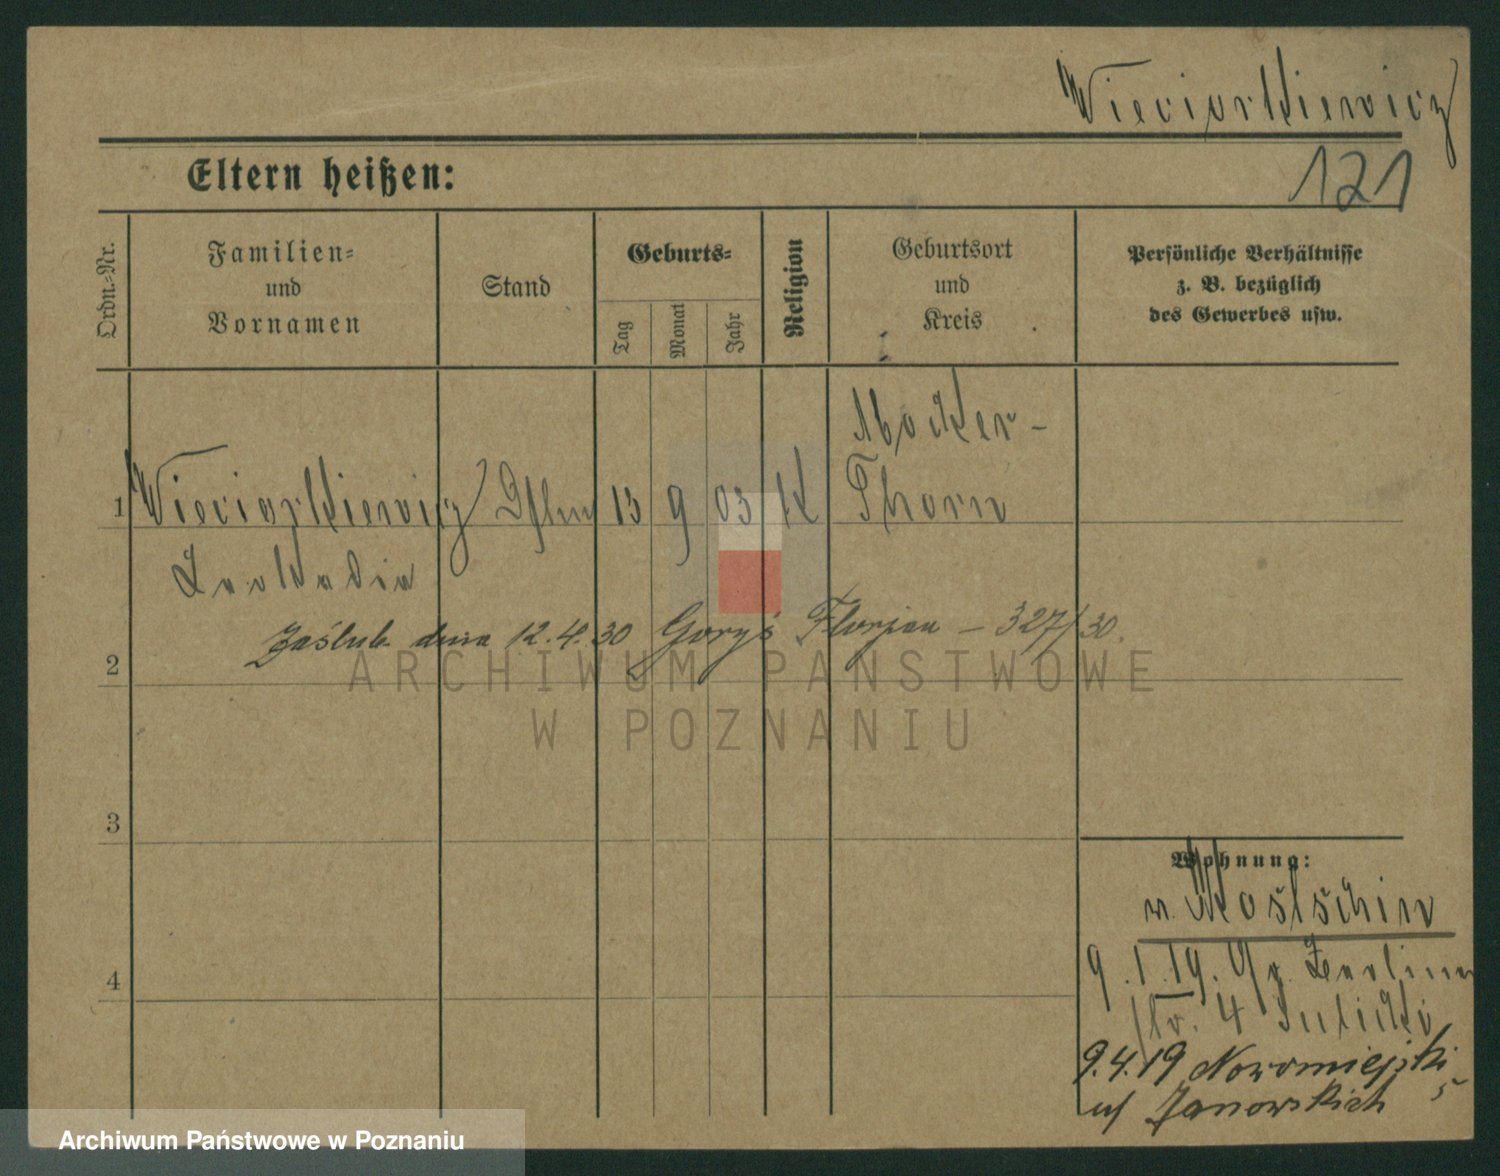 Wieciorkiewicz
Eltern heißen:
121
Ordn.-Nr.
Familien-
und
Vornamen
Stand
Geburts-
Tag
Monat
Jahr
Religion
Geburtsort
und
Kreis
Persönliche Verhältnisse
z. B. bezüglich
des Gewerbes usw.
Mocker-
1 Wieciorkiewicz 13 9 03 K Thorn
Leokadia
Zaślub. dnia 12.4.30 Goryś Florjan – 327/30.
2
ARCHIWUM PAŃSTWOWE
W POZNANIU
3
Wohnung:
n. Kostschin
4
9.1.19. Gr. Berliner
str. 4
9.4.19 Nowomiejski 5
u/ Janowskich
Archiwum Państwowe w Poznaniu